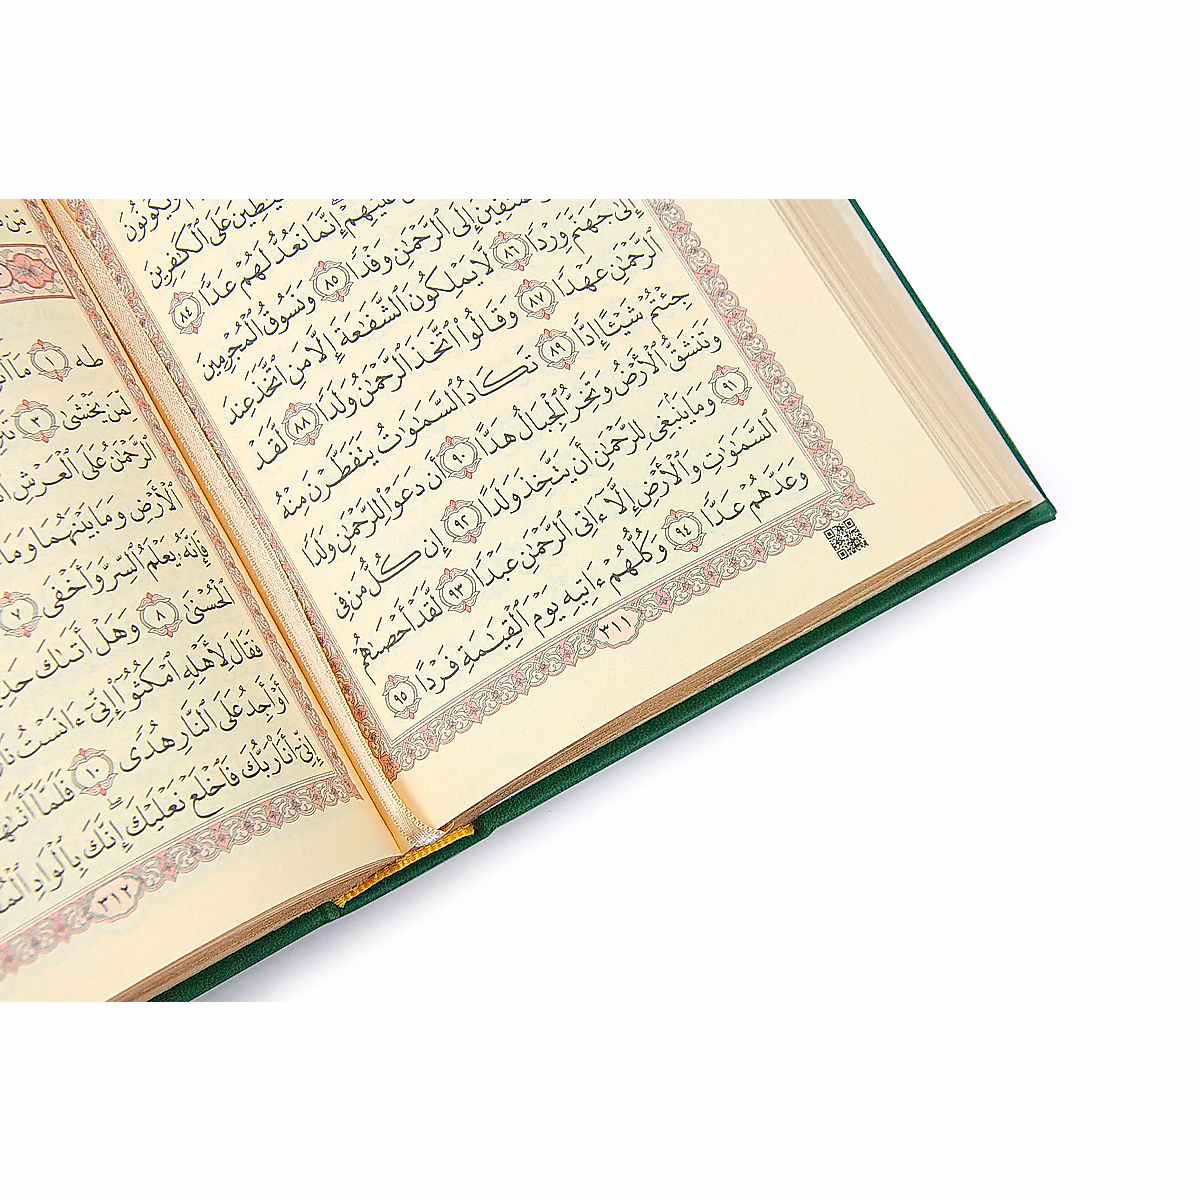 وَيَكُونُونَ
عَلَى ٱلْكَٰفِرِينَ
إِنَّمَا نَعُدُّ لَهُمْ عَدًّا ٨٤
إِلَى ٱلرَّحْمَٰنِ وَفْدًا ٨٥ وَنَسُوقُ ٱلْمُجْرِمِينَ
إِلَىٰ جَهَنَّمَ وِرْدًا ٨٦ لَّا يَمْلِكُونَ ٱلشَّفَٰعَةَ إِلَّا مَنِ ٱتَّخَذَ عِندَ
ٱلرَّحْمَٰنِ عَهْدًا ٨٧ وَقَالُوا۟ ٱتَّخَذَ ٱلرَّحْمَٰنُ وَلَدًا ٨٨ لَّقَدْ
جِئْتُمْ شَيْـًٔا إِدًّا ٨٩ تَكَادُ ٱلسَّمَٰوَٰتُ يَتَفَطَّرْنَ مِنْهُ
وَتَنشَقُّ ٱلْأَرْضُ وَتَخِرُّ ٱلْجِبَالُ هَدًّا ٩٠ أَن دَعَوْا۟ لِلرَّحْمَٰنِ وَلَدًا
٩١ وَمَا يَنۢبَغِى لِلرَّحْمَٰنِ أَن يَتَّخِذَ وَلَدًا ٩٢ إِن كُلُّ مَن فِى
ٱلسَّمَٰوَٰتِ وَٱلْأَرْضِ إِلَّآ ءَاتِى ٱلرَّحْمَٰنِ عَبْدًا ٩٣ لَّقَدْ أَحْصَىٰهُمْ
وَعَدَّهُمْ عَدًّا ٩٤ وَكُلُّهُمْ ءَاتِيهِ يَوْمَ ٱلْقِيَٰمَةِ فَرْدًا ٩٥
٣١١
طه ١ مَآ
لِّمَن يَخْشَىٰ ٣
ٱلرَّحْمَٰنُ عَلَى ٱلْعَرْشِ
ٱلْأَرْضِ وَمَا بَيْنَهُمَا وَمَا
فَإِنَّهُۥ يَعْلَمُ ٱلسِّرَّ وَأَخْفَى ٧
ٱلْحُسْنَىٰ ٨ وَهَلْ أَتَىٰكَ
فَقَالَ لِأَهْلِهِ ٱمْكُثُوٓا۟ إِنِّىٓ ءَانَسْتُ
أَوْ أَجِدُ عَلَى ٱلنَّارِ هُدًى ١٠ فَلَمَّآ أَتَىٰهَا
إِنِّىٓ أَنَا۠ رَبُّكَ فَٱخْلَعْ نَعْلَيْكَ ۖ إِنَّكَ بِٱلْوَادِ
٣١٢